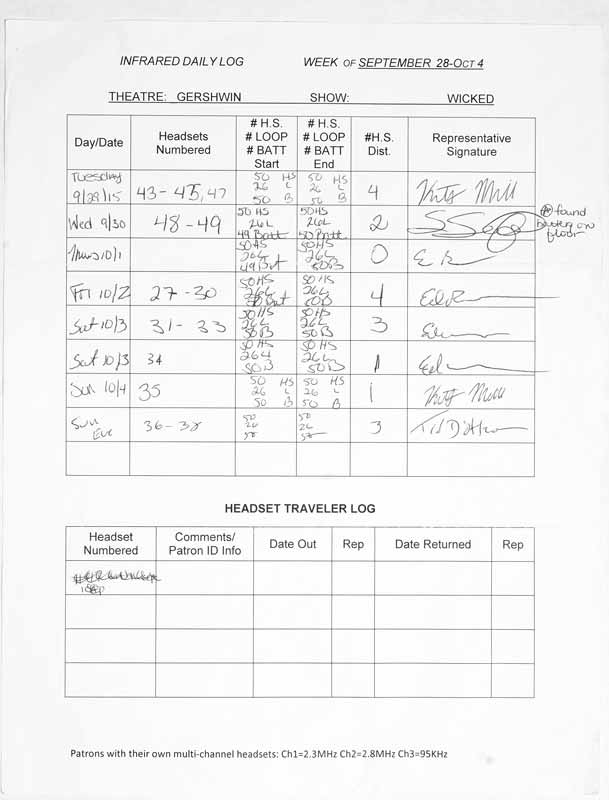 INFRARED DAILY LOG WEEK OF SEPTEMBER 28-OCT 4
THEATRE: GERSHWIN SHOW: WICKED
Day/Date Headsets Numbered # H.S. # LOOP # BATT Start # H.S. # LOOP # BATT End #H.S. Dist. Representative Signature
Tuesday 9/29/15 43-45, 47 50 HS 26 L 50 B 50 HS 26 L 50 B 4
Wed 9/30 48-49 50 HS 26L 49 Batt 50 HS 26L 50 Batt 2 found battery on floor
Thurs 10/1 50 HS 26L 49 Bat 50HS 26L 50B 0
Fri 10/2 27-30 50HS 26L 50 Bat 50HS 26L 50B 4
Sat 10/3 31-33 50HS 26L 50B 50HS 26L 50B 3
Sat 10/3 34 50 HS 26L 50B 50 HS 26L 50B 1
Sun 10/4 35 50 HS 26 L 50 B 50 HS 26 L 50 B 1
Sun Eve 36-38 50 26 50 50 26 50 3
HEADSET TRAVELER LOG
Headset Numbered Comments/ Patron ID Info Date Out Rep Date Returned Rep
Patrons with their own multi-channel headsets: Ch1=2.3MHz Ch2=2.8MHz Ch3=95KHz